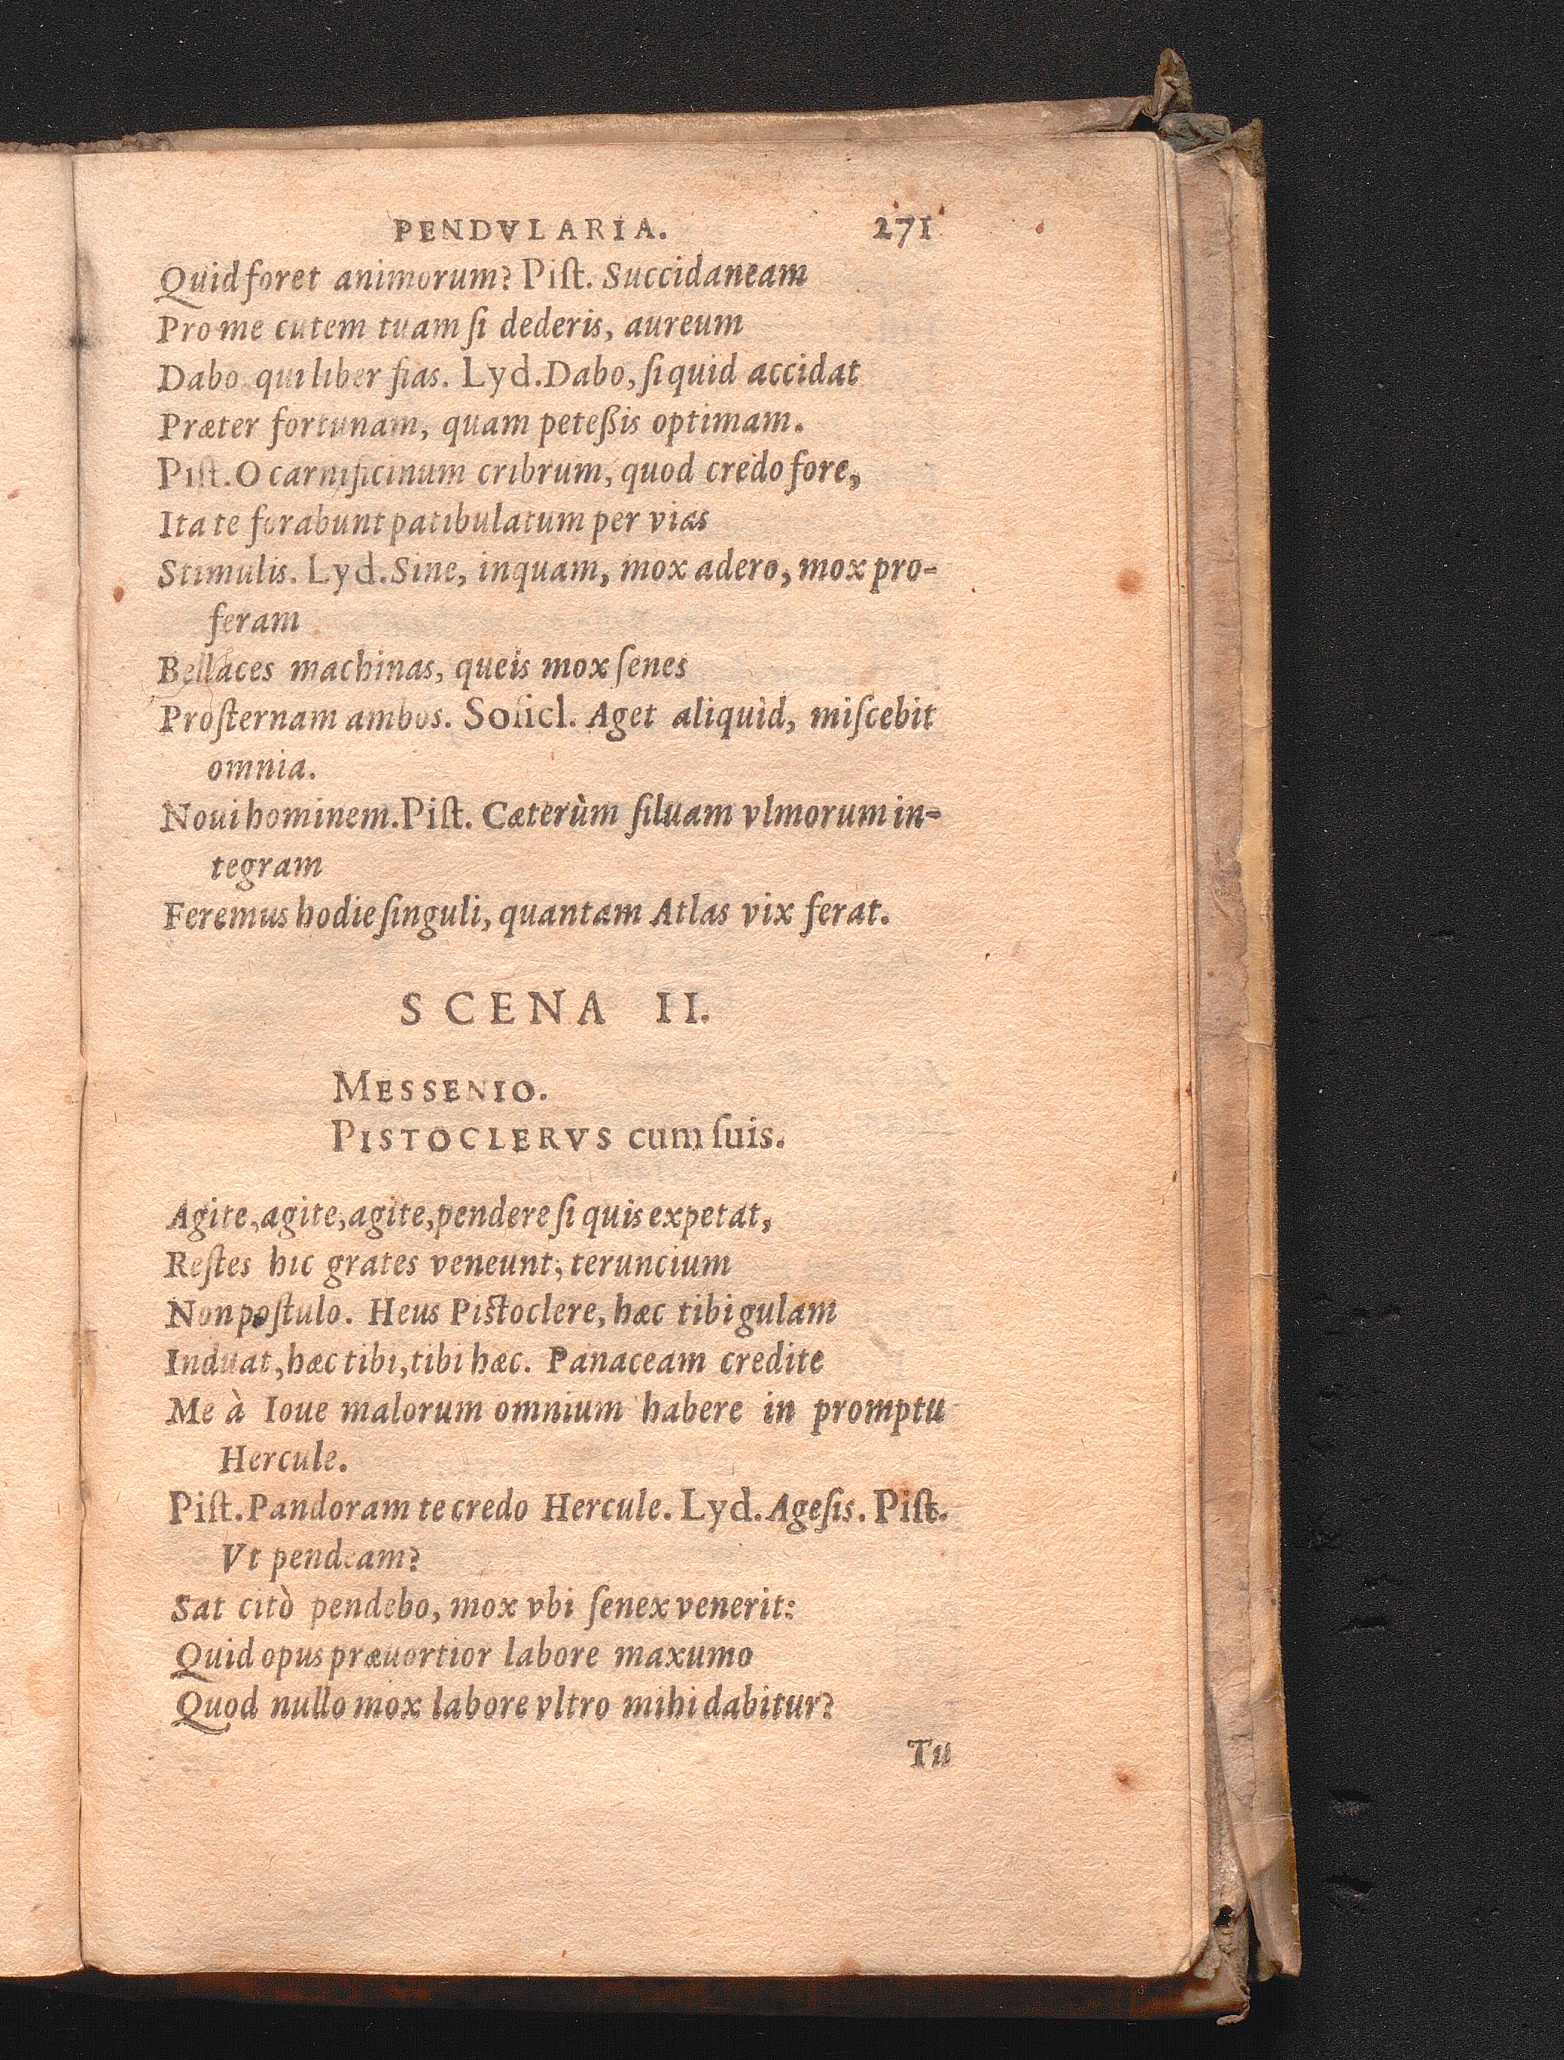 PENDVLARIA. 271
Quid foret animorum? Piſt. Succidaneam
Pro me cutem tuam ſi dederis, aureum
Dabo qui liber fias. Lyd. Dabo, ſi quid accidat
Præter fortunam, quam peteßis optimam.
Piſt. O carnificinum cribrum, quod credo fore,
Ita te forabunt patibulatum per vias
Stimulis. Lyd. Sine, inquam, mox adero, mox pro-
feram
Bellaces machinas, queis mox ſenes
Proſternam ambos. Soſicl. Aget aliquid, miſcebit
omnia.
Noui hominem. Piſt. Cæterùm ſiluam vlmorum in-
tegram
Feremus hodie ſinguli, quantam Atlas vix ferat.
SCENA II.
MESSENIO.
PISTOCLERVS cum ſuis.
Agite, agite, agite, pendere ſi quis expetat,
Reſtes hic grates veneunt, teruncium
Non poſtulo. Heus Piſtoclere, hæc tibi gulam
Induat, hæc tibi, tibi hæc. Panaceam credite
Me à Ioue malorum omnium habere in promptu
Hercule.
Piſt. Pandoram te credo Hercule. Lyd. Ageſis. Piſt.
Vt pendeam?
Sat citò pendebo, mox vbi ſenex venerit:
Quid opus præuortier labore maxumo
Quod nullo mox labore vltro mihi dabitur?
Tu